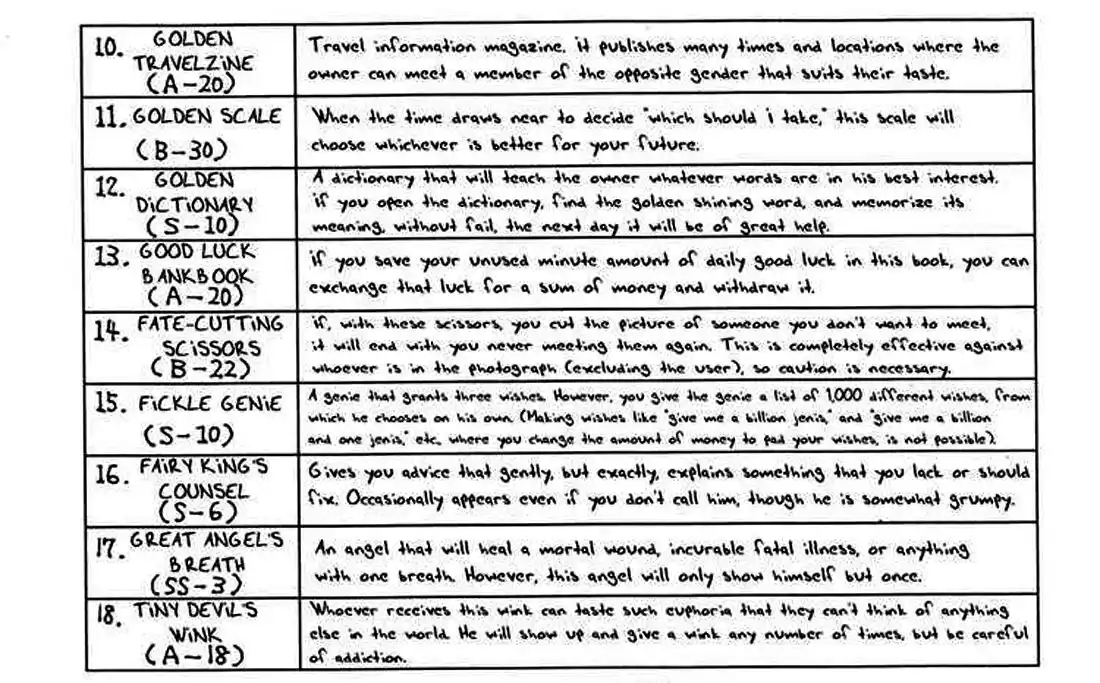 10. GOLDEN
TRAVELZINE
(A-20)
Travel information magazine. it publishes many times and locations where the
owner can meet a member of the opposite gender that suits their taste.
11. GOLDEN SCALE
(B-30)
When the time draws near to decide "which should i take," this scale will
choose whichever is better for your future.
12. GOLDEN
DICTIONARY
(S-10)
A dictionary that will teach the owner whatever words are in his best interest.
if you open the dictionary, find the golden shining word, and memorize its
meaning, without fail, the next day it will be of great help.
13. GOOD LUCK
BANKBOOK
(A-20)
if you save your unused minute amount of daily good luck in this book, you can
exchange that luck for a sum of money and withdraw it.
14. FATE-CUTTING
SCISSORS
(B-22)
if, with these scissors, you cut the picture of someone you don't want to meet,
it will end with you never meeting them again. This is completely effective against
whoever is in the photograph (excluding the user), so caution is necessary.
15. FICKLE GENIE
(S-10)
A genie that grants three wishes. However, you give the genie a list of 1,000 different wishes, from
which he chooses on his own. (Making wishes like "give me a billion jenis," and "give me a billion
and one jenis," etc. where you change the amount of money to pad your wishes, is not possible).
16. FAIRY KING'S
COUNSEL
(S-6)
Gives you advice that gently, but exactly, explains something that you lack or should
fix. Occasionally appears even if you don't call him, though he is somewhat grumpy.
17. GREAT ANGEL'S
BREATH
(SS-3)
An angel that will heal a mortal wound, incurable fatal illness, or anything
with one breath. However, this angel will only show himself but once.
18. TINY DEVIL'S
WINK
(A-18)
Whoever receives this wink can taste such euphoria that they can't think of anything
else in the world. He will show up and give a wink any number of times, but be careful
of addiction.